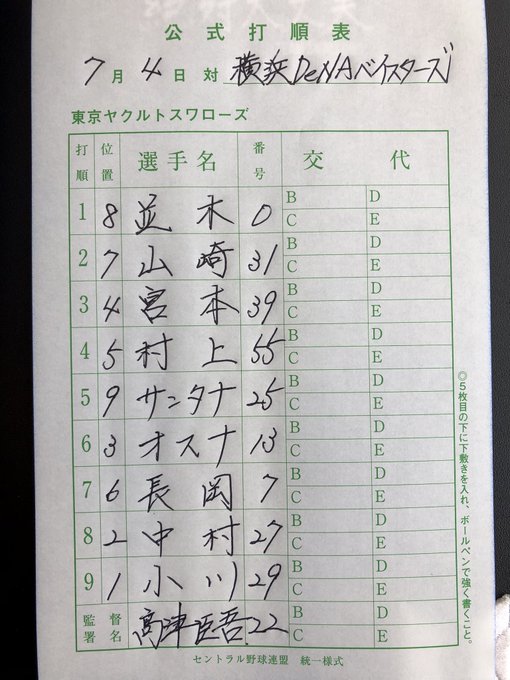 公式打順表
7月4日対 横浜DeNAベイスターズ
東京ヤクルトスワローズ
打順 位置 選手名 番号 交代
1 8 並木 0 B D
C E
2 7 山崎 31 B D
C E
3 4 宮本 39 B D
C E
4 5 村上 55 B D
C E
5 9 サンタナ 25 B D
C E
6 3 オスナ 13 B D
C E
7 6 長岡 7 B D
C E
8 2 中村 27 B D
C E
9 1 小川 29 B D
C E
監督署名 高津臣吾 22 B D
C E
◎5枚目の下に下敷きを入れ、ボールペンで強く書くこと。
セントラル野球連盟 統一様式